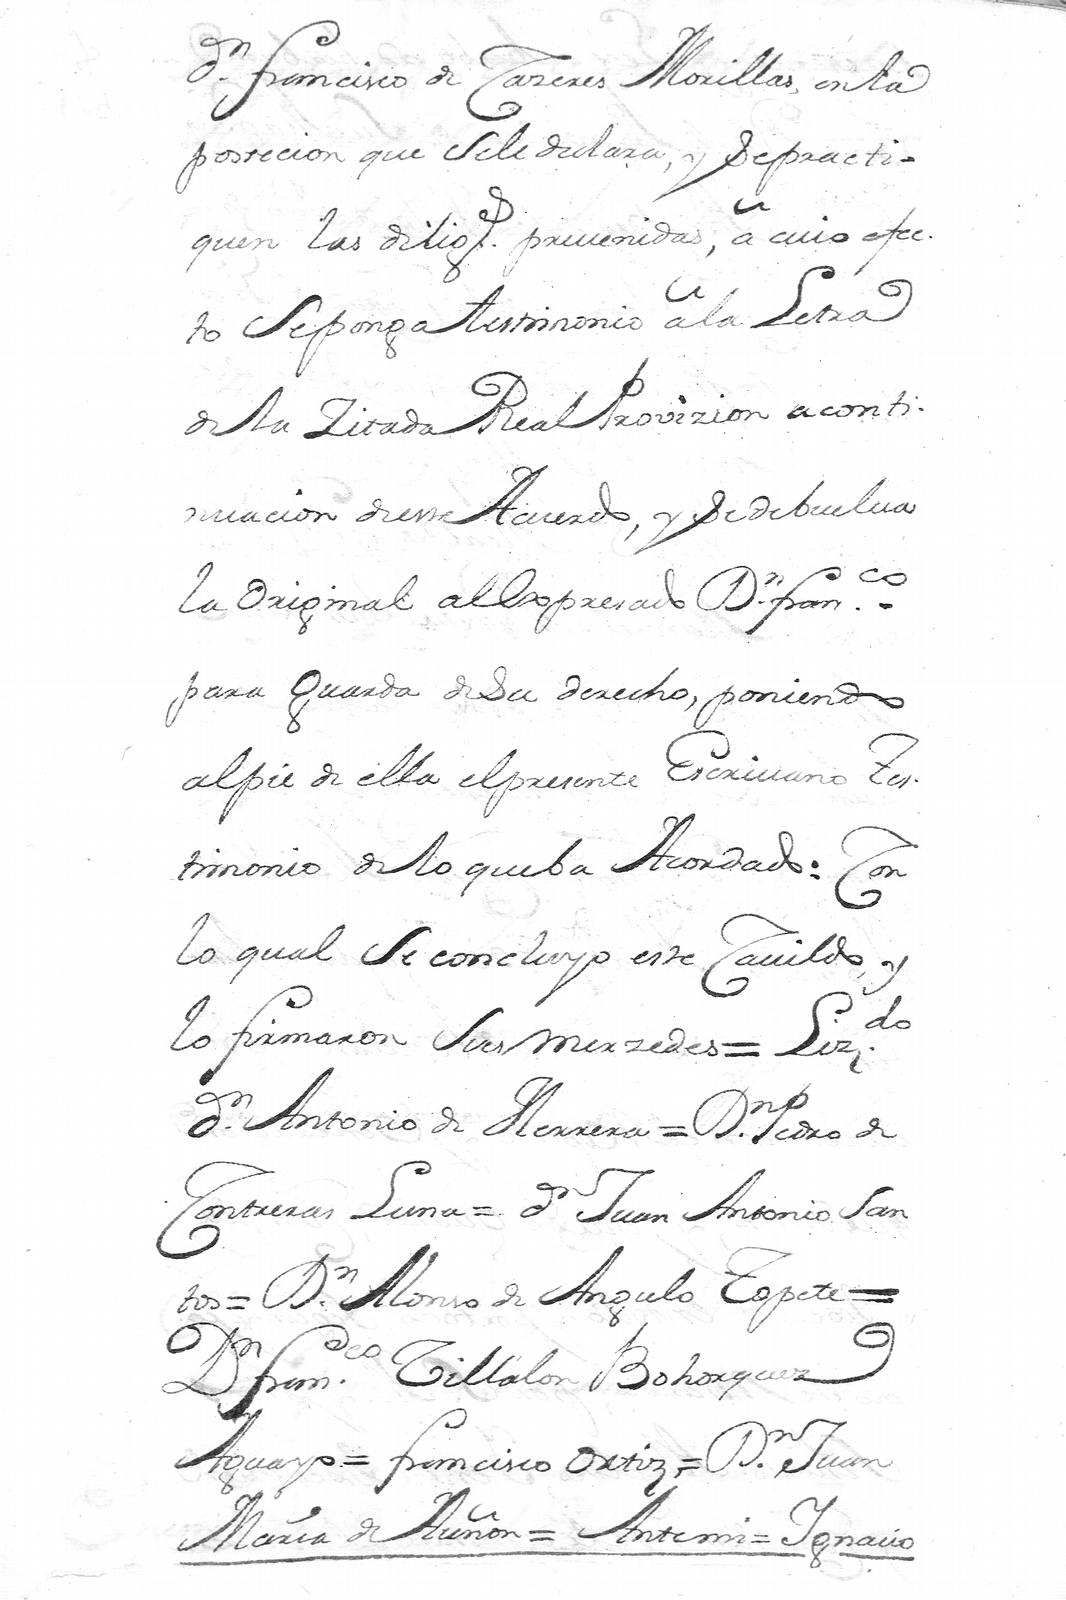 dn. francisco de Cazeres Morillas, en la
possecion que sele declara, y se practi-
quen las dilig.s prevenidas, â cuio efec-
to se ponga testimonio â la Letra
de la Zitada Real Provizion a conti-
nuacion de este Acuerdo, y se debuelva
la Original al Expresado Dn. fran.co
para guarda de su derecho, poniendo
al pie de ella el presente Escrivano Tes-
timonio de lo que ba Acordado: Con
lo qual se concluyo este Cavildo, y
lo firmaron sus merzedes = Liz.do
dn. Antonio de Herrera = Dn. Pedro de
Contreras Luna = dn Juan Antonio San
tos = Dn. Alonso de Angulo Topete =
Dn fran.co Villalon Bohorquez
Aguayo = francisco Ortiz = Dn. Juan
Maria de Auñon = Antemi = Ignacio